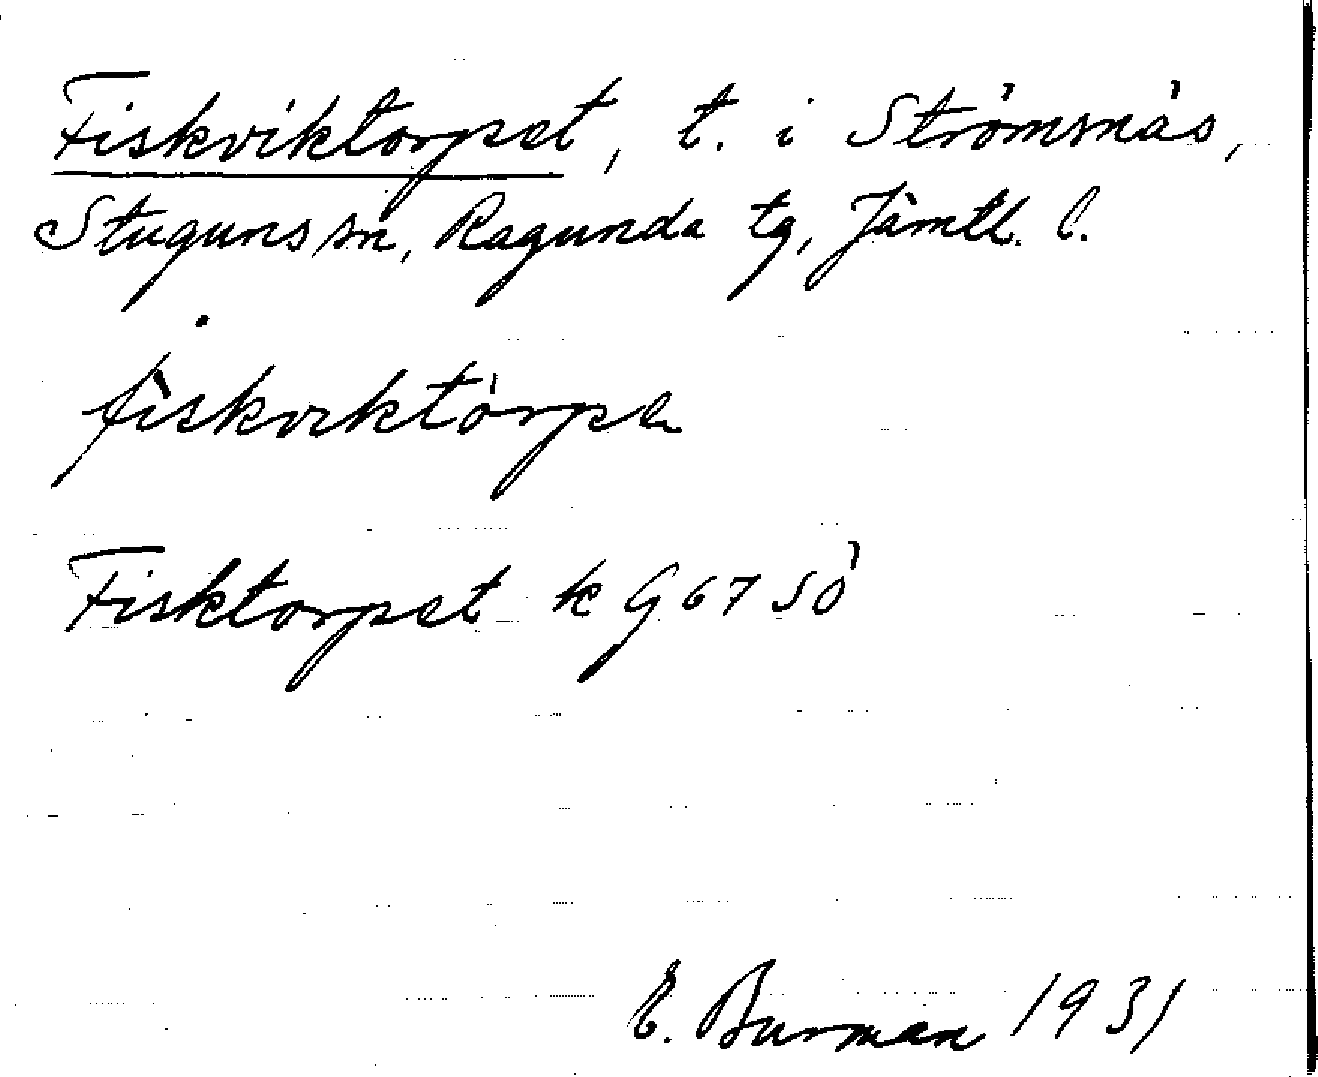 Fiskviktorpet, t. i Strömsnäs,
Stuguns sn, Ragunda tg, Jämtl. l.
fìskviktórpe
Fisktorpet k G 67 SÖ
E. Burman 1931